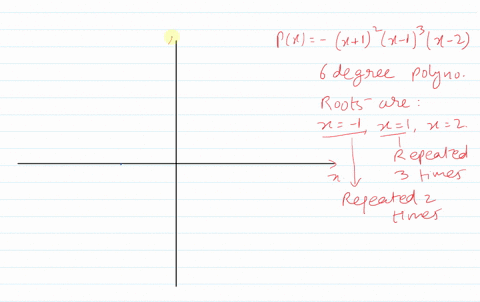 P(x) = - (x+1)²(x-1)³(x-2)
6 degree polyno.
Roots are :
x = -1, x = 1, x = 2.
Repeated
3 times
x
Repeated 2
times